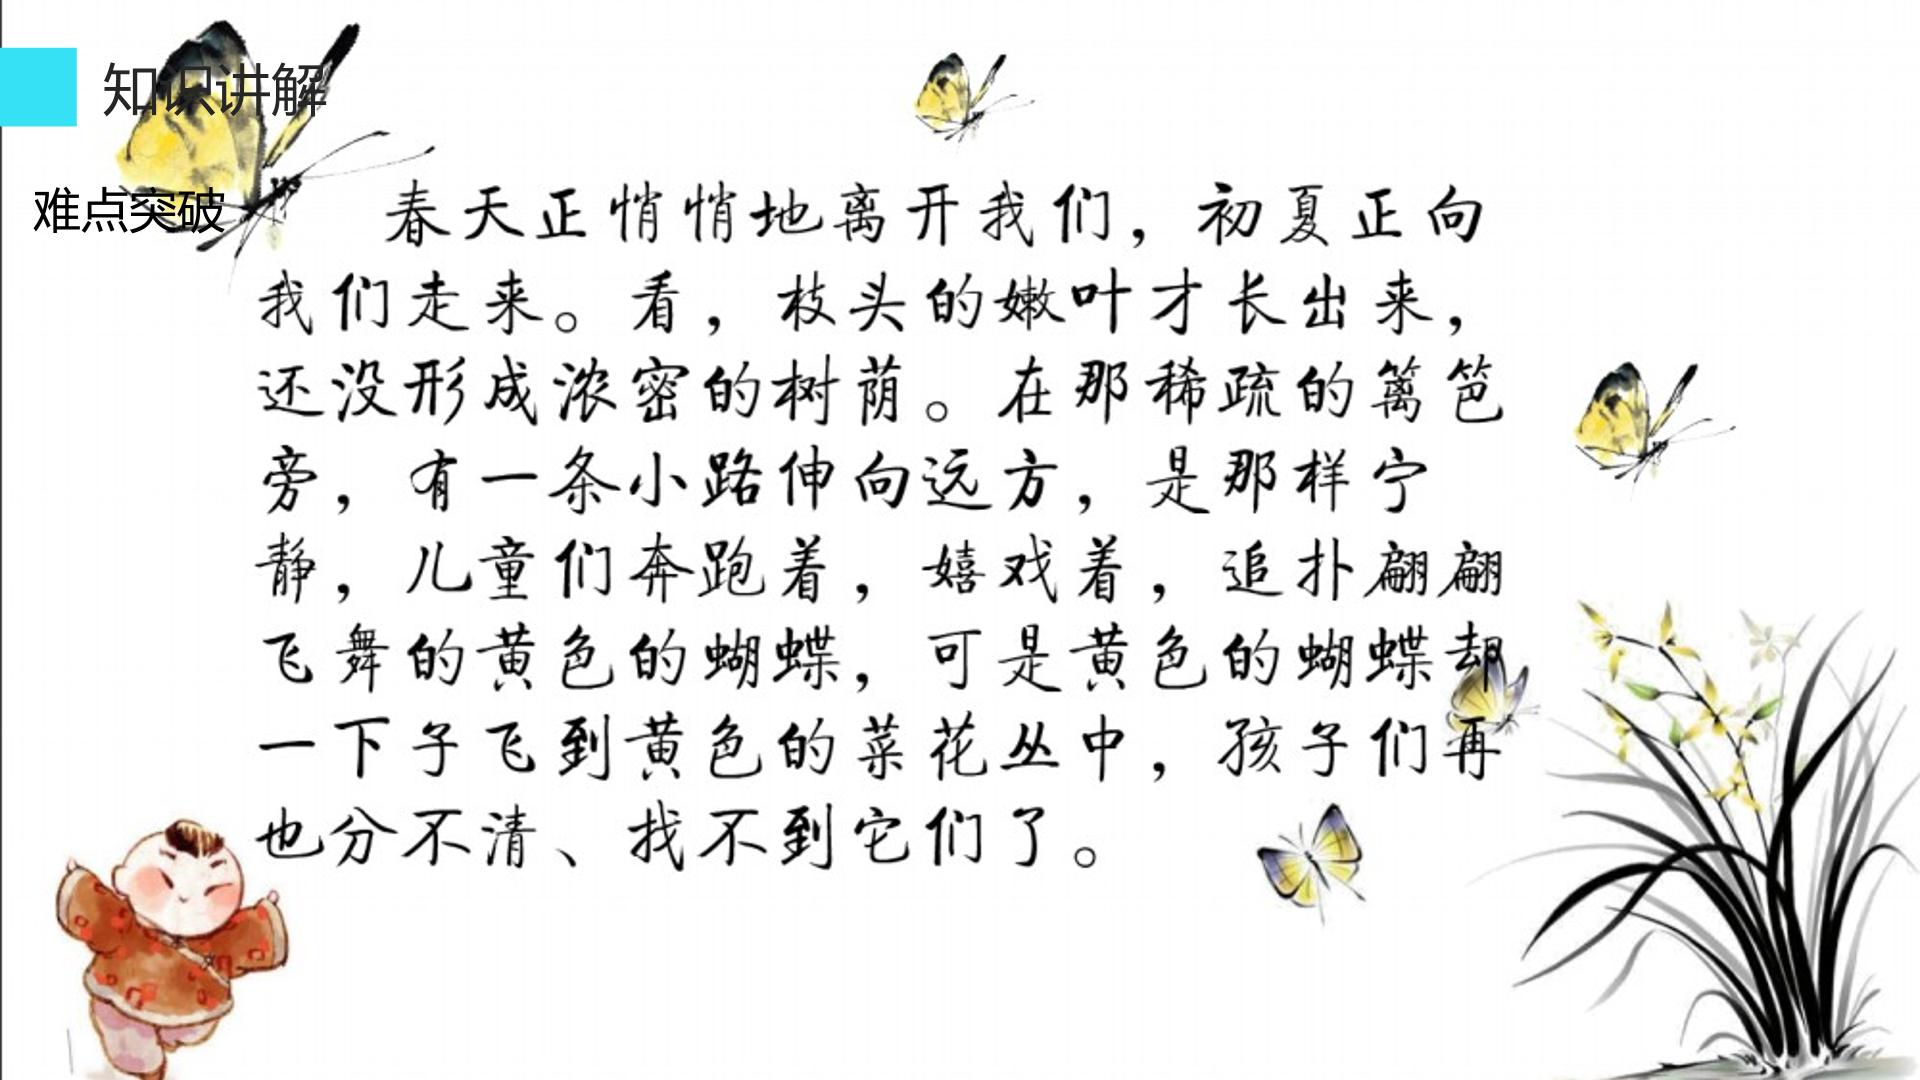 知识讲解
难点突破
春天正悄悄地离开我们，初夏正向
我们走来。看，枝头的嫩叶才长出来，
还没形成浓密的树荫。在那稀疏的篱笆
旁，有一条小路伸向远方，是那样宁
静，儿童们奔跑着，嬉戏着，追扑翩翩
飞舞的黄色的蝴蝶，可是黄色的蝴蝶却
一下子飞到黄色的菜花丛中，孩子们再
也分不清、找不到它们了。